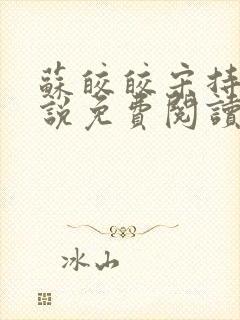 蘇皎皎宋持
說免費閱讀
冰山